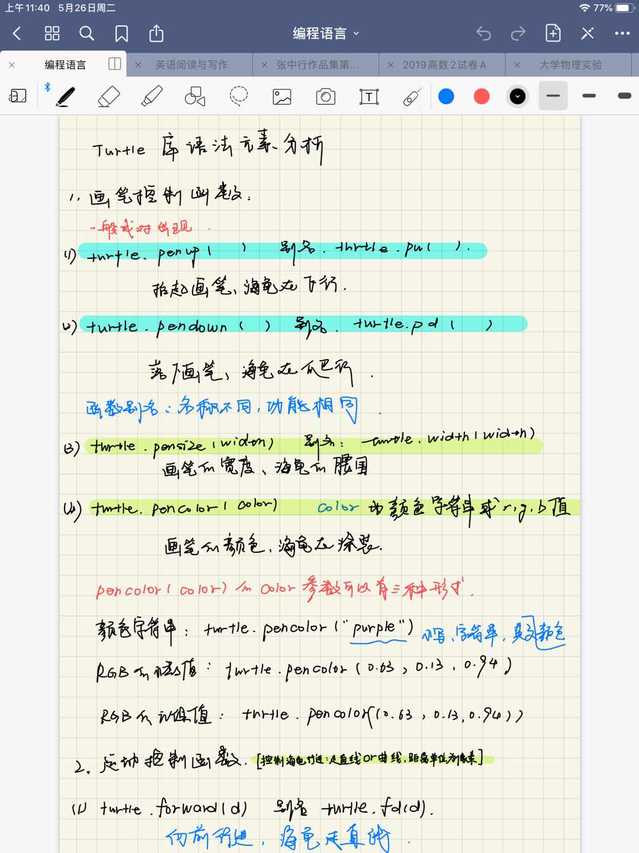 上午11:40 5月26日周二
77%
编程语言
编程语言 英语阅读与写作 张中行作品集第... 2019高数2试卷A 大学物理实验
Turtle 库语法元素分析
1. 画笔控制函数:
一般成对出现
(1) turtle.penup( ) 别名. turtle.pu( ).
抬起画笔,海龟在飞行.
(2) turtle.pendown( ) 别名. turtle.pd( )
落下画笔,海龟在爬行.
函数别名:名称不同,功能相同.
(3) turtle.pensize(width) 别名: turtle.width(width)
画笔的宽度、海龟的腰围
(4) turtle.pencolor(color) color为颜色字符串或r,g,b值
画笔的颜色,海龟在涂装.
pencolor(color)的color参数可以有三种形式.
颜色字符串: turtle.pencolor("purple") 小写,字符串,英文颜色
RGB的小数值: turtle.pencolor(0.63, 0.13, 0.94)
RGB的元组值: turtle.pencolor((0.63, 0.13, 0.94))
2. 运动控制函数. [控制海龟行进:走直线or曲线,距离单位为像素]
(1) turtle.forward(d) 别名 turtle.fd(d).
向前行进,海龟走直线.